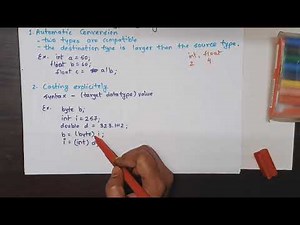 1. Automatic Conversion
- two types are compatible
- the destination type is larger than the source type.
Ex. int a = 50;
float b = 60;
float c = a/b;
int, float
2. Casting explicitly
syntax - (target datatype) value
Ex. byte b;
int i = 263;
double d = 323.102;
b = (byte) i;
i = (int) d